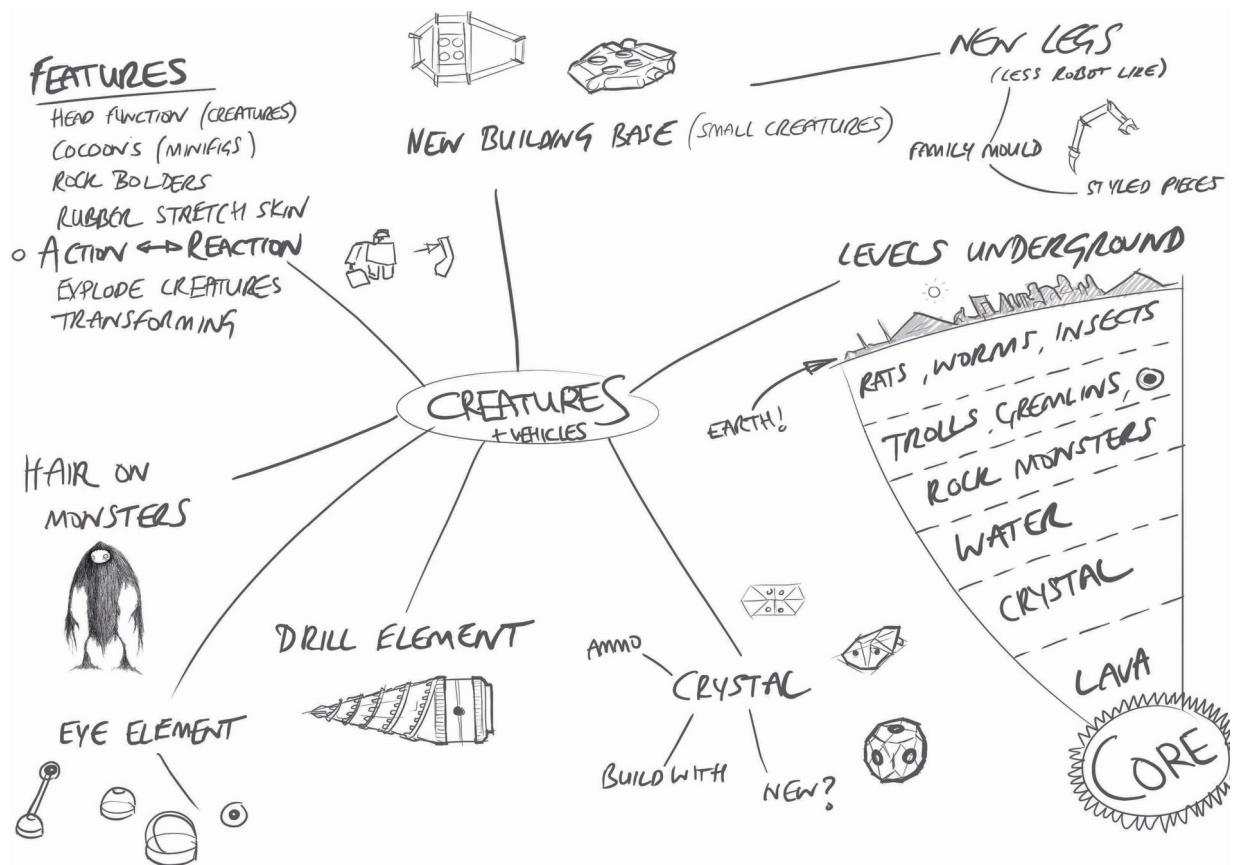 FEATURES
HEAD FUNCTION (CREATURES)
COCOONS (MINIFIGS)
ROCK BOLDERS
RUBBER STRETCH SKIN
ACTION ↔ REACTION
EXPLODE CREATURES
TRANSFORMING
NEW BUILDING BASE (SMALL CREATURES)
NEW LEGS
(LESS ROBOT LIKE)
FAMILY MOULD
STYLED PIECES
LEVELS UNDERGROUND
EARTH!
RATS, WORMS, INSECTS
TROLLS, GREMLINS,
ROCK MONSTERS
WATER
CRYSTAL
LAVA
CORE
CREATURES
+ VEHICLES
HAIR ON
MONSTERS
EYE ELEMENT
DRILL ELEMENT
CRYSTAL
AMMO
BUILD WITH
NEW?